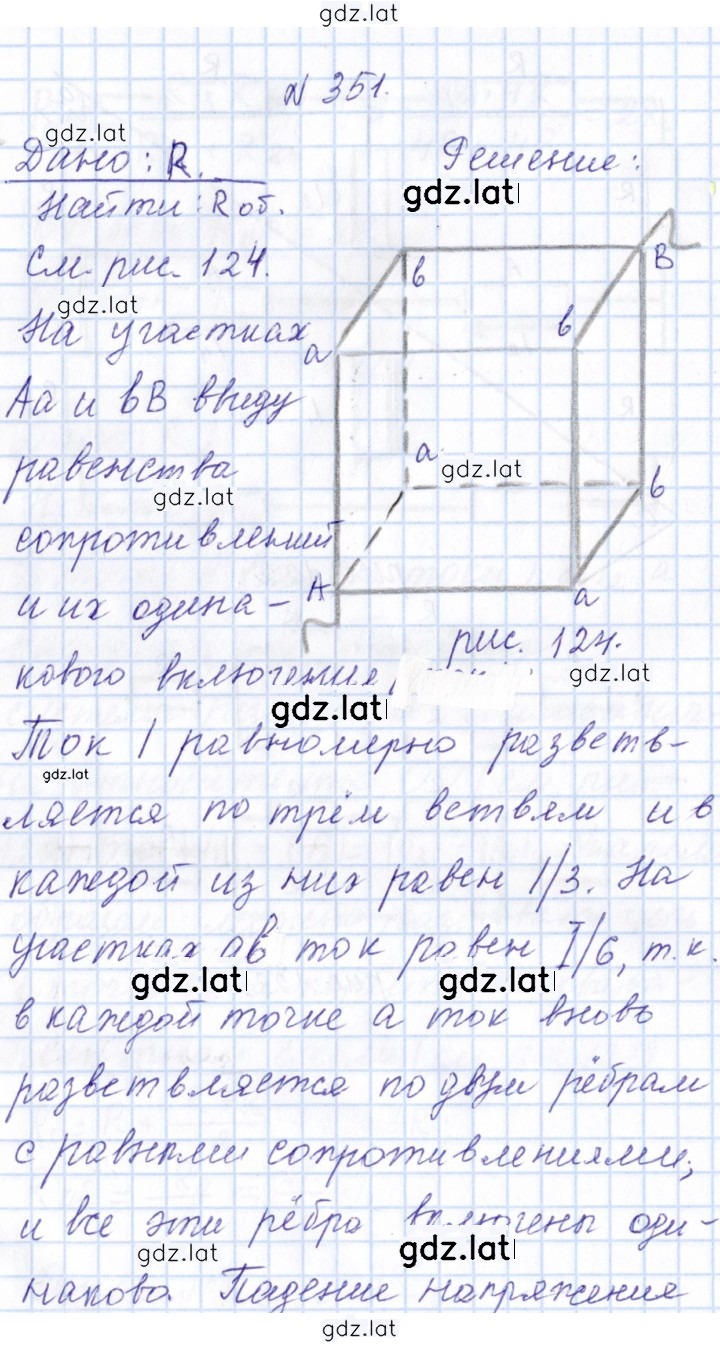 gdz.lat
№ 351.
gdz.lat
Дано: R.
Решение:
gdz.lat
Найти: Rоб.
См. рис. 124.
в
B
gdz.lat
На участках
а
в
Aа и вB ввиду
равенства
а
gdz.lat
в
gdz.lat
сопротивлений
A
а
и их одина-
рис. 124.
кового включения
gdz.lat
gdz.lat
Ток I равномерно разветв-
gdz.lat
ляется по трём ветвям и в
каждой из них равен I/3. На
участках ав ток равен I/6, т.к.
gdz.lat
gdz.lat
в каждой точке а ток вновь
разветвляется по двум рёбрам
с равными сопротивлениями,
и все эти рёбра включены оди-
gdz.lat
gdz.lat
накова. Падение напряжения
gdz.lat